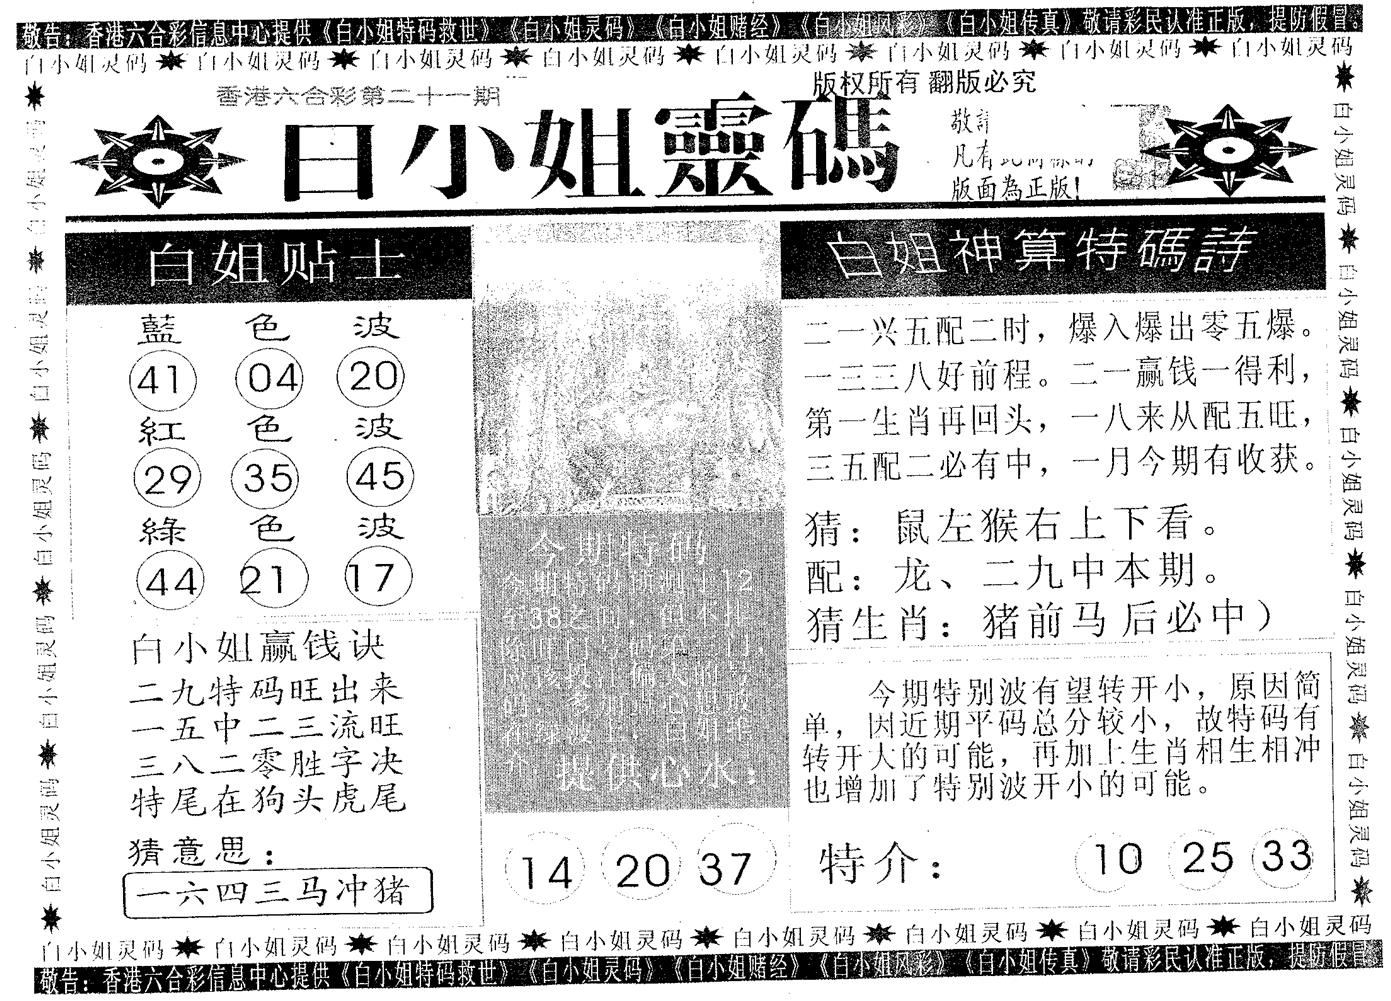 敬告：香港六合彩信息中心提供《白小姐特码救世》《白小姐灵码》《白小姐赌经》《白小姐风彩》《白小姐传真》敬请彩民认准正版，提防假冒。
白小姐灵码 白小姐灵码 白小姐灵码 白小姐灵码 白小姐灵码 白小姐灵码 白小姐灵码 白小姐灵码
香港六合彩第二十一期
版权所有 翻版必究
白小姐靈碼
敬
凡有
版面為正版!
白姐贴士
藍 色 波
41 04 20
紅 色 波
29 35 45
綠 色 波
44 21 17
白小姐赢钱诀
二九特码旺出来
一五中二三流旺
三八二零胜字决
特尾在狗头虎尾
猜意思：
一六四三马冲猪
今期特码
12
38之
提供心水：
14 20 37
白姐神算特碼詩
二一兴五配二时，爆入爆出零五爆。
一三三八好前程。二一赢钱一得利，
第一生肖再回头，一八来从配五旺，
三五配二必有中，一月今期有收获。
猜：鼠左猴右上下看。
配：龙、二九中本期。
猜生肖：猪前马后必中）
今期特别波有望转开小，原因简
单，因近期平码总分较小，故特码有
转开大的可能，再加上生肖相生相冲
也增加了特别波开小的可能。
特介：
10 25 33
白小姐灵码 白小姐灵码 白小姐灵码 白小姐灵码 白小姐灵码
白小姐灵码 白小姐灵码 白小姐灵码 白小姐灵码 白小姐灵码
白小姐灵码 白小姐灵码 白小姐灵码 白小姐灵码 白小姐灵码 白小姐灵码 白小姐灵码 白小姐灵码
敬告：香港六合彩信息中心提供《白小姐特码救世》《白小姐灵码》《白小姐赌经》《白小姐风彩》《白小姐传真》敬请彩民认准正版，提防假冒